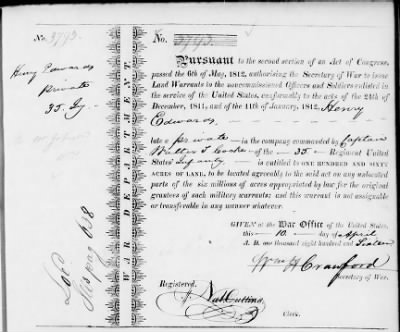 No. 3793.
Henry Edwards
Private
35. Iy.
Loc'd
this pag 658
WAR DEPARTMENT.
No. 3793.
Pursuant to the second section of an Act of Congress,
passed the 6th of May, 1812, authorising the Secretary of War to issue
Land Warrants to the noncommissioned Officers and Soldiers enlisted in
the service of the United States, conformably to the acts of the 24th of
December, 1811, and of the 11th of January, 1812, Henry
Edwards,
late a private in the company commanded by Captain
Walter T. Cocke of the 35 Regiment United
States' Infantry is entitled to ONE HUNDRED AND SIXTY
ACRES OF LAND, to be located agreeably to the said act on any unlocated
parts of the six millions of acres appropriated by law for the original
grantees of such military warrants; and this warrant is not assignable
or transferable in any manner whatever.
GIVEN at the War Office of the United States,
this 10. day of April
A. D. one thousand eight hundred and Sixteen
Wm H Crawford
Secretary of War.
Registered.
Nat Cutting
Clerk.